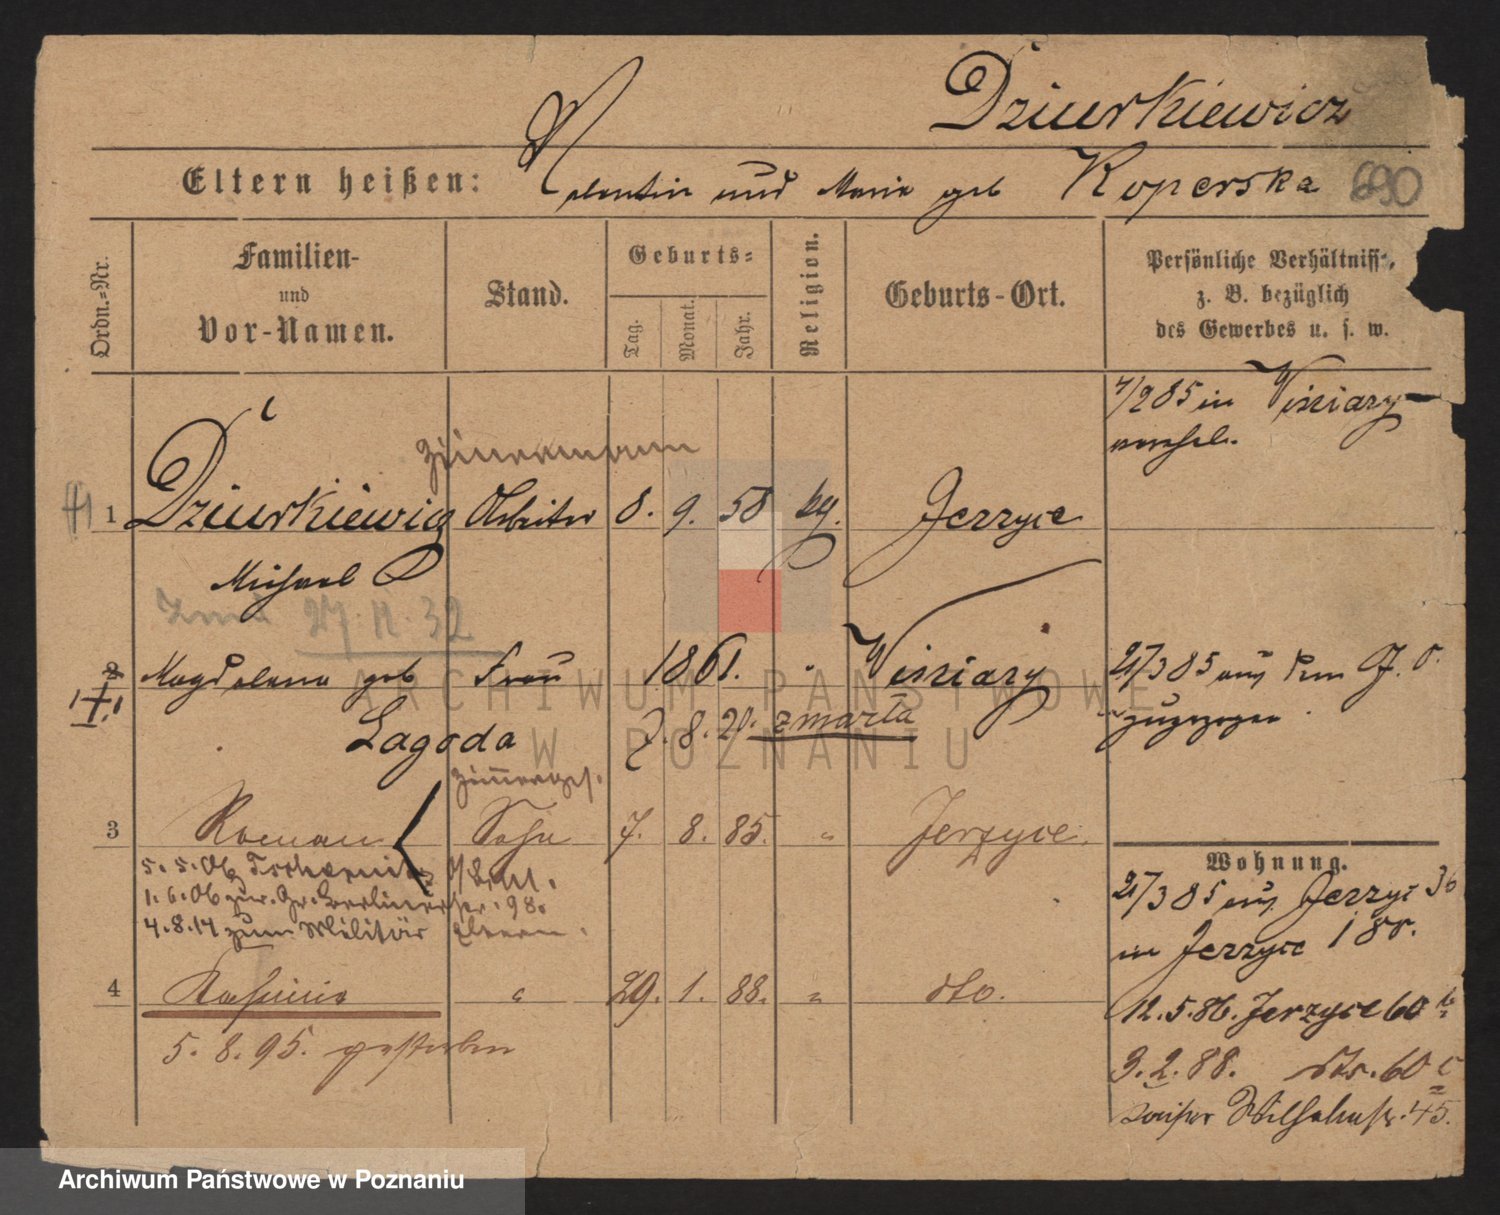 Dziurkiewicz
Eltern heißen: Valentin und Maria geb Koperska 690
Ordn.=Nr.
Familien-
und
Vor-Namen.
Stand.
Geburts=
Tag.
Monat.
Jahr.
Religion.
Geburts-Ort.
Persönliche Verhältniss
z. B. bezüglich
des Gewerbes u. s. w.
1/2 85 in Winiary
verehel.
Zimmermann
1 Dziurkiewicz Arbeiter 8. 9. 58 kg. Jerzyce
Michael
27. 11. 32
2 Magdalena geb Frau 1861. " Winiary 27/3 85 aus
Lagoda 7. 8. 20. zmarła zugezogen
Zimmerges.
3 Roman Sohn 7. 8. 85. " Jerzyce.
5. 5. 06
1. 6. 06 zur. Gr. Berliner str. 98.
4. 8. 14 zum Militär Eltern.
4 " 29. 1. 88. " dto.
5. 8. 95. gestorben
Wohnung.
27/3 85 aus Jerzyce 36
in Jerzyce 188.
12. 5. 86. Jerzyce 60 b
3. 2. 88. dto. 60 c
45.
ARCHIWUM PAŃSTWOWE
W POZNANIU
Archiwum Państwowe w Poznaniu